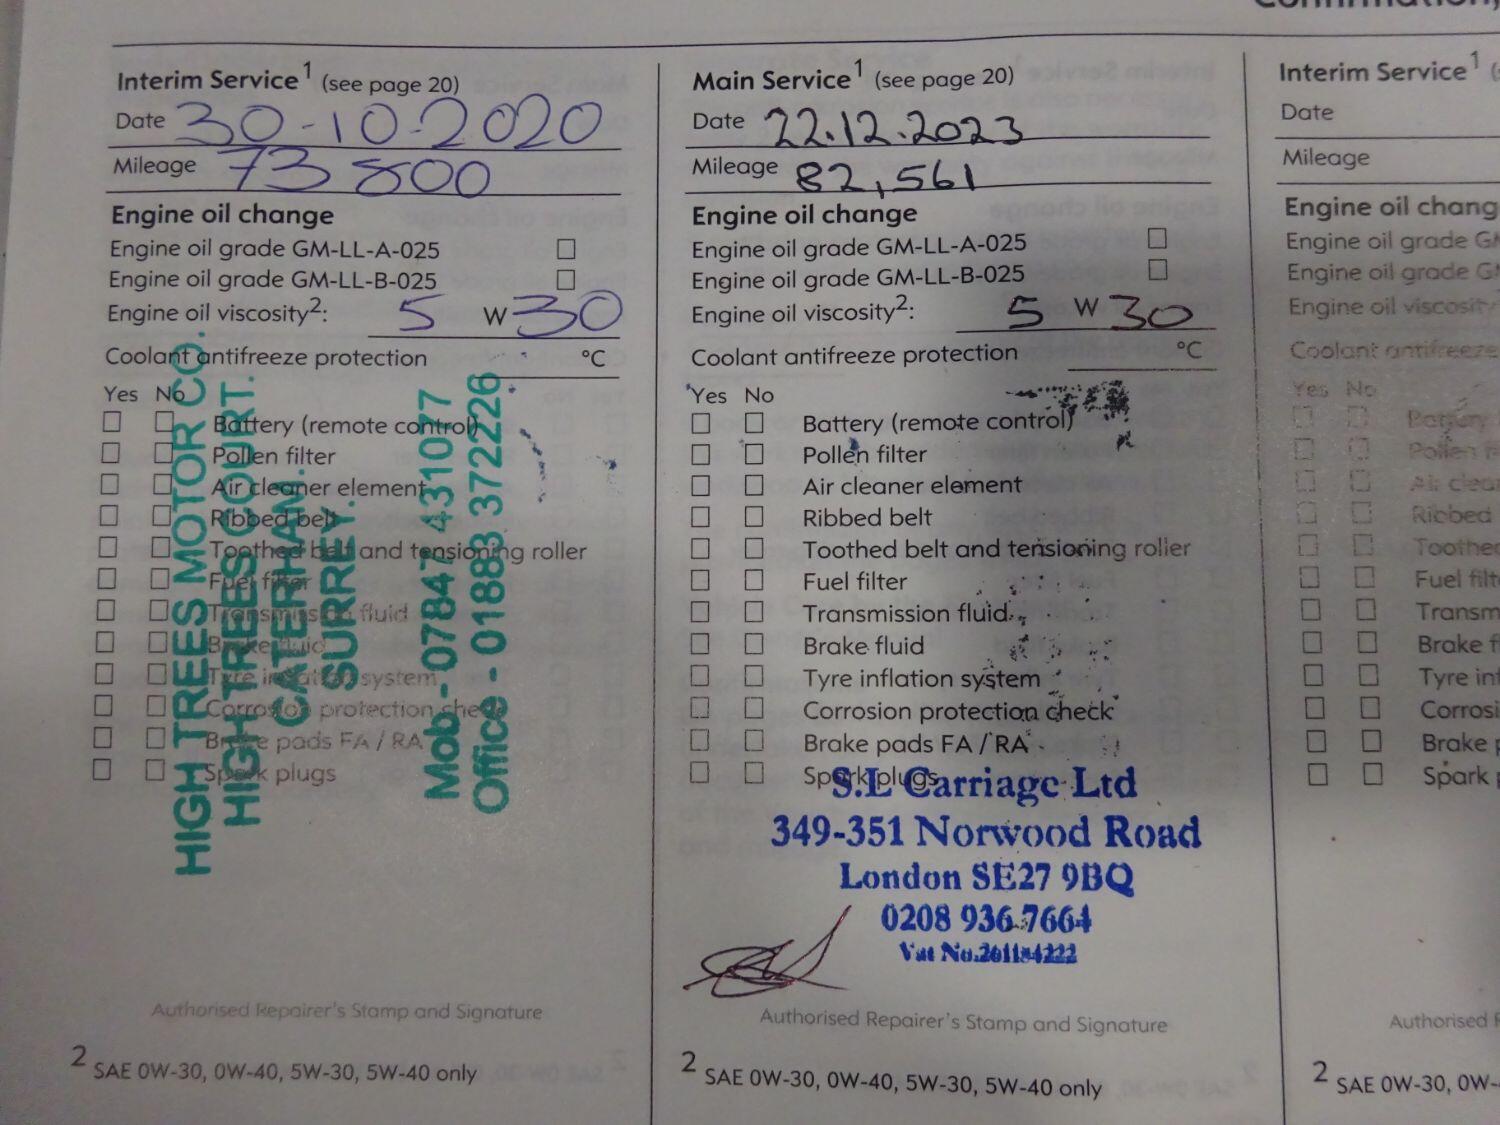 Interim Service¹ (see page 20)
Date 30-10-2020
Mileage 73 800
Engine oil change
Engine oil grade GM-LL-A-025
Engine oil grade GM-LL-B-025
Engine oil viscosity²: 5 W 30
Coolant antifreeze protection °C
Yes No
Battery (remote control)
Pollen filter
Air cleaner element
Ribbed belt
Toothed belt and tensioning roller
Fuel filter
Transmission fluid
Brake fluid
Tyre inflation system
Corrosion protection check
Brake pads FA / RA
Spark plugs
HIGH TREES MOTOR CO.
HIGH TREES COURT.
CATERHAM.
SURREY.
Mob - 07847 431077
Office - 01883 372226
Authorised Repairer's Stamp and Signature
2 SAE 0W-30, 0W-40, 5W-30, 5W-40 only
Main Service¹ (see page 20)
Date 22.12.2023
Mileage 82,561
Engine oil change
Engine oil grade GM-LL-A-025
Engine oil grade GM-LL-B-025
Engine oil viscosity²: 5 W 30
Coolant antifreeze protection °C
Yes No
Battery (remote control)
Pollen filter
Air cleaner element
Ribbed belt
Toothed belt and tensioning roller
Fuel filter
Transmission fluid
Brake fluid
Tyre inflation system
Corrosion protection check
Brake pads FA / RA
Spark plugs
S.L Carriage Ltd
349-351 Norwood Road
London SE27 9BQ
0208 936 7664
Vat No.
Authorised Repairer's Stamp and Signature
2 SAE 0W-30, 0W-40, 5W-30, 5W-40 only
Interim Service¹ (
Date
Mileage
Engine oil chang
Engine oil grade G
Engine oil grade G
Engine oil viscosity
Coolant antifreeze
Yes No
Battery
Pollen
Air clea
Ribbed
Toothed
Fuel filt
Transm
Brake f
Tyre in
Corrosi
Brake p
Spark p
Authorised
2 SAE 0W-30, 0W-